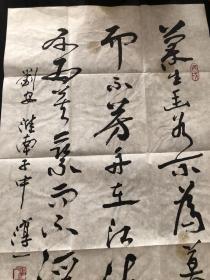 蘭生幽谷不為莫
而不芳舟在江
不為莫乘而不浮
劉安淮南子中 淳一